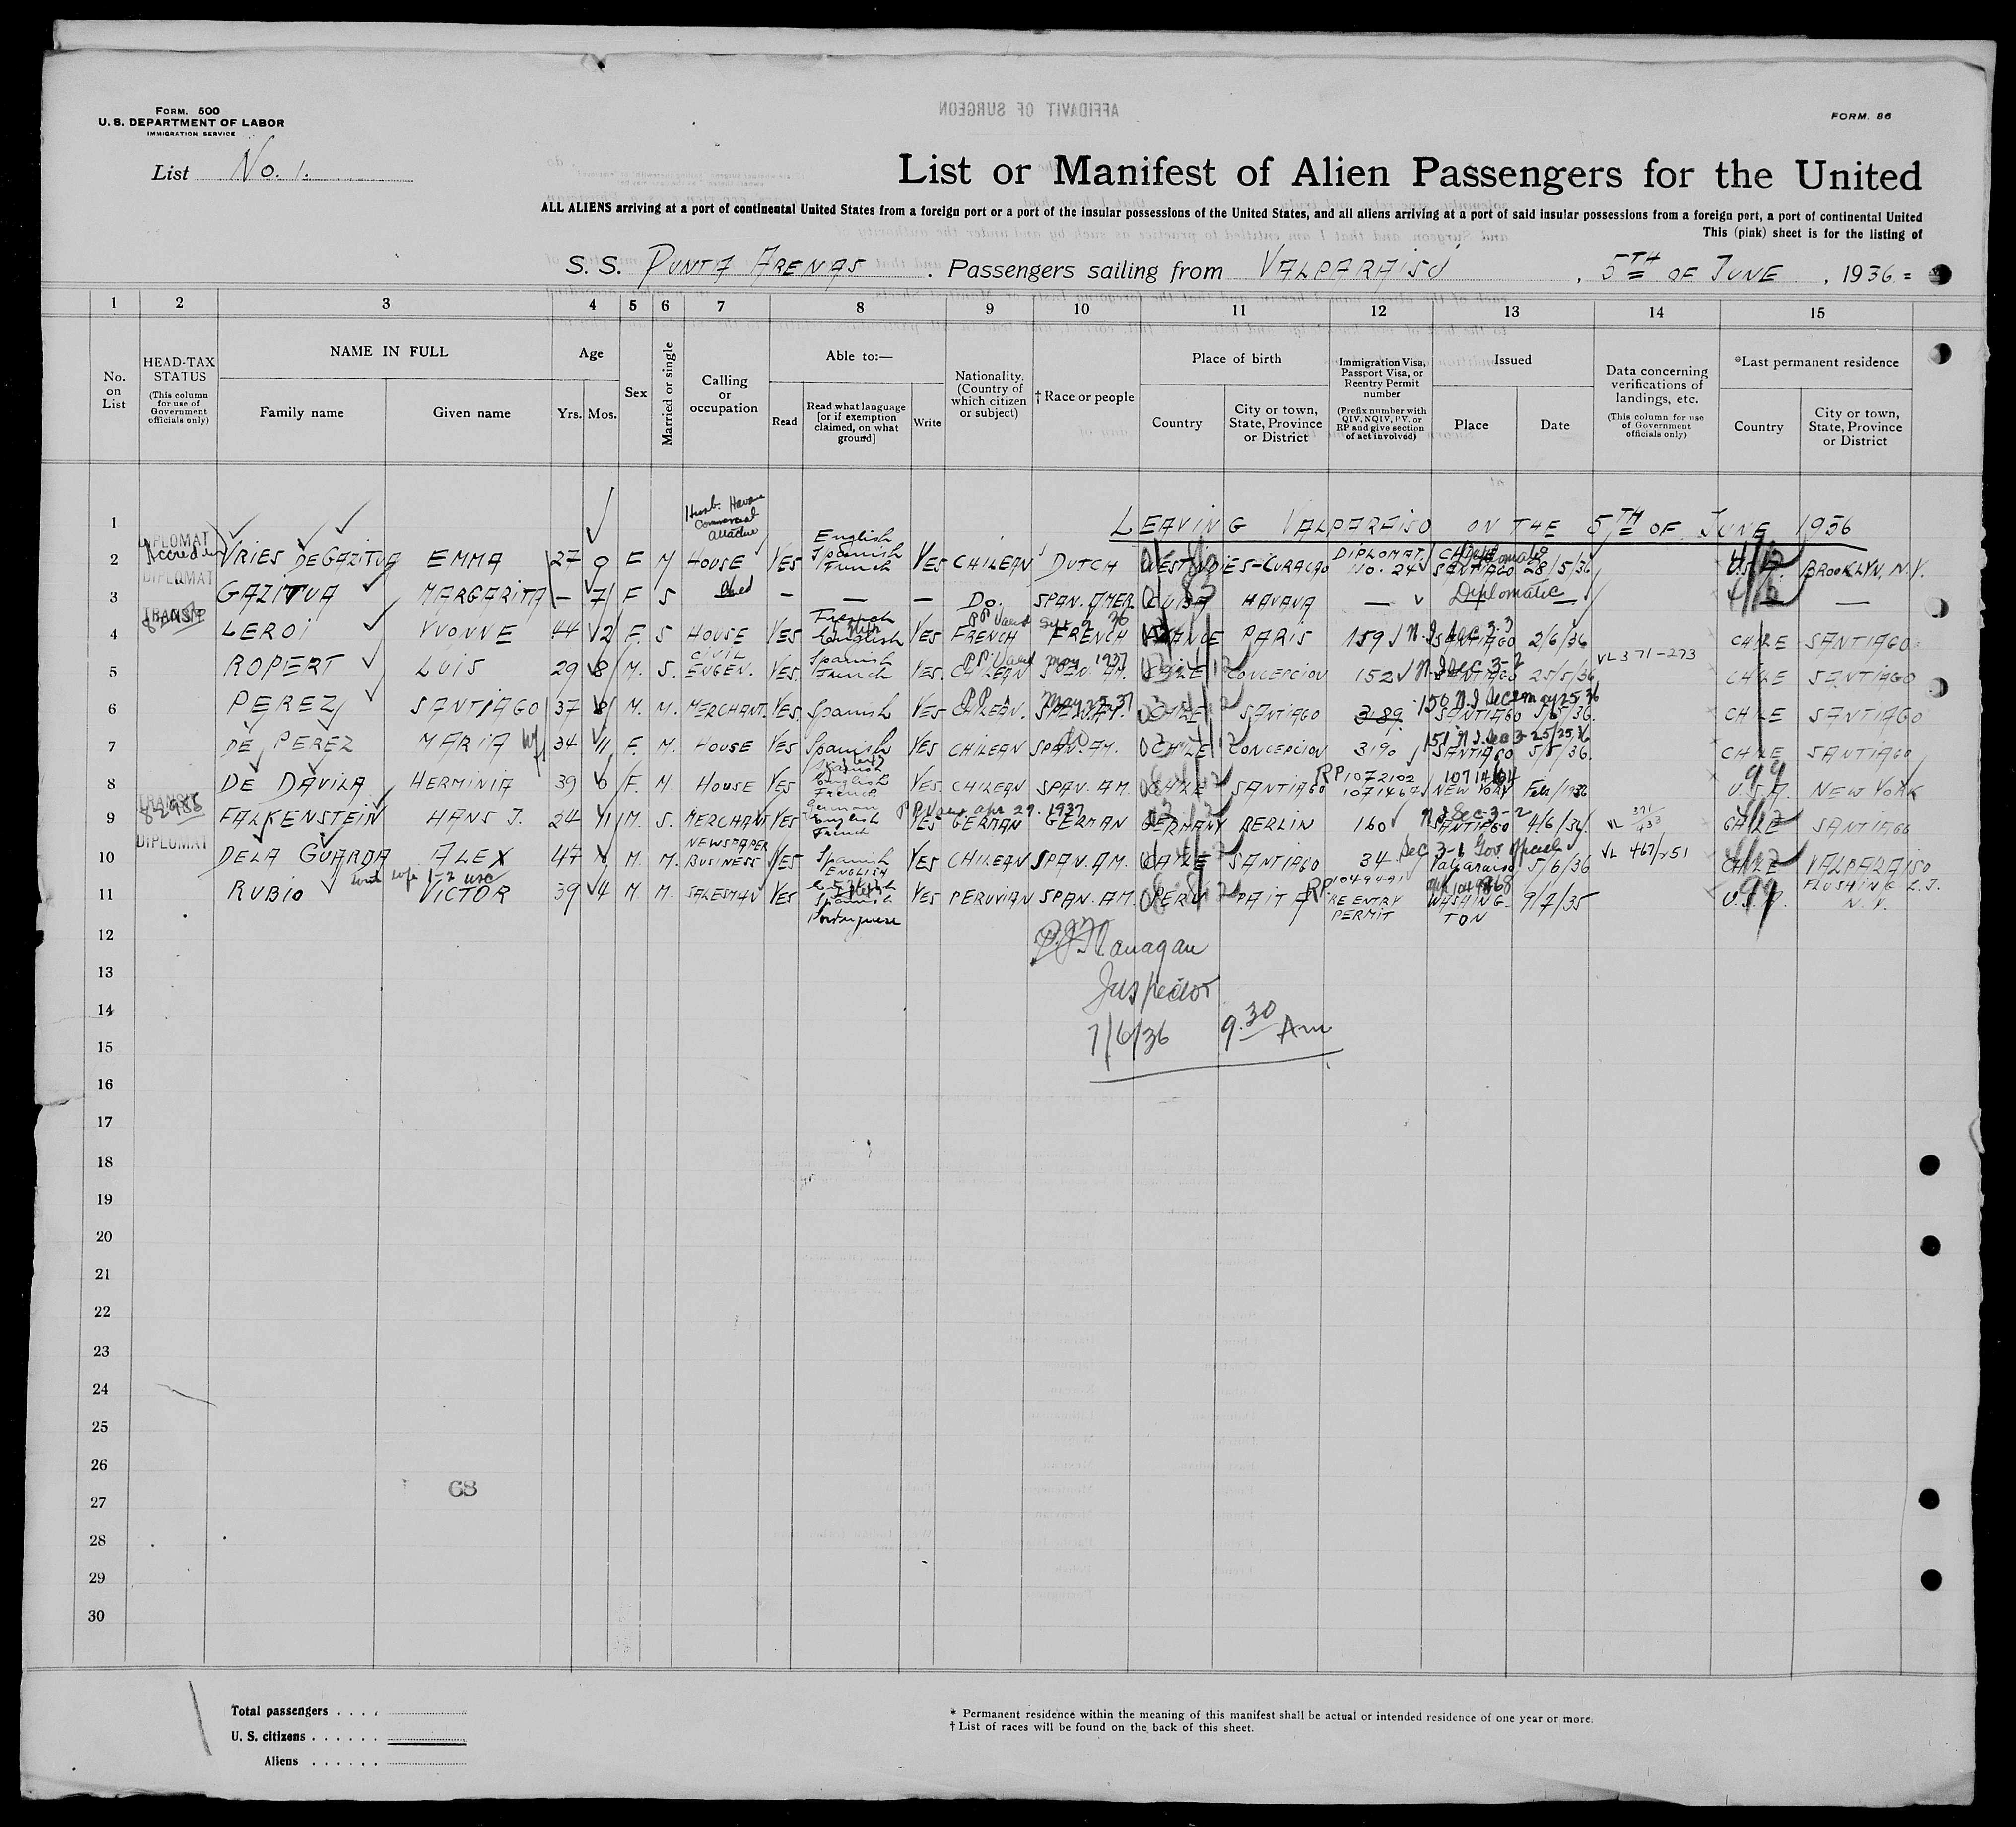 FORM. 500
U. S. DEPARTMENT OF LABOR
IMMIGRATION SERVICE
AFFIDAVIT OF SURGEON
FORM. 86
List No. 1.
List or Manifest of Alien Passengers for the United
ALL ALIENS arriving at a port of continental United States from a foreign port or a port of the insular possessions of the United States, and all aliens arriving at a port of said insular possessions from a foreign port, a port of continental United
This (pink) sheet is for the listing of
S. S. PUNTA ARENAS. Passengers sailing from VALPARAISO, 5TH OF JUNE, 1936=
1 2 3 4 5 6 7 8 9 10 11 12 13 14 15
No. on List
HEAD-TAX STATUS (This column for use of Government officials only)
NAME IN FULL
Family name
Given name
Age
Yrs. Mos.
Sex
Married or single
Calling or occupation
Able to:—
Read
Read what language [or if exemption claimed, on what ground]
Write
Nationality. (Country of which citizen or subject)
† Race or people
Place of birth
Country
City or town, State, Province or District
Immigration Visa, Passport Visa, or Reentry Permit number
(Prefix number with QIV, NQIV, PV, or RP and give section of act involved)
Issued
Place
Date
Data concerning verifications of landings, etc.
(This column for use of Government officials only)
*Last permanent residence
Country
City or town, State, Province or District
1 LEAVING VALPARAISO ON THE 5TH OF JUNE 1936
Husb. Havana Commercial attache
DIPLOMAT
2 VRIES DE GAZITUA EMMA 27 0 F M HOUSE YES English Spanish French YES CHILEAN DUTCH WEST INDIES-CURAÇAO DIPLOMAT. No. 24 SANTIAGO 28/5/36 U.S.A. BROOKLYN, N.Y.
DIPLOMAT
3 GAZITUA MARGARITA — 7 F S — — — Do. SPAN. AMER CUBA HAVANA — Diplomatic —
TRANSIT
4 LEROI YVONNE 44 2 F. S HOUSE YES French English YES FRENCH FRENCH FRANCE PARIS 159 SANTIAGO 2/6/36 CHILE SANTIAGO
5 ROPERT LUIS 29 8 M. S. CIVIL ENGEN. YES. Spanish French YES. CHILEAN SPAN. AM. CHILE CONCEPCION 152 SANTIAGO 25/5/36 VL 371-273 CHILE SANTIAGO
6 PEREZ SANTIAGO 37 8 M. M. MERCHANT. YES. Spanish YES CHILEAN. SPAN. AM. CHILE SANTIAGO 3189 SANTIAGO 5/5/36. CHILE SANTIAGO
7 DE PEREZ MARIA 34 11 F. M. HOUSE YES Spanish YES CHILEAN SPAN. AM. CHILE CONCEPCION 3190 SANTIAGO 5/5/36. CHILE SANTIAGO
8 DE DAVILA HERMINIA 39 6 F. M. HOUSE YES Spanish English French YES. CHILEAN SPAN. AM. CHILE SANTIAGO RP 1072102 NEW YORK Feb/1936 U.S.A. NEW YORK
TRANSIT
9 FALKENSTEIN HANS J. 24 11 M. S. MERCHANT YES German English French YES GERMAN GERMAN GERMANY BERLIN 160 SANTIAGO 4/6/36. CHILE SANTIAGO
DIPLOMAT
10 DE LA GUARDA ALEX 47 M. M. NEWSPAPER BUSINESS YES Spanish ENGLISH YES CHILEAN SPAN. AM. CHILE SANTIAGO 34 Sec 3-1 Gov Official Valparaiso 5/6/36 VL 467/251 CHILE VALPARAISO
11 RUBIO VICTOR 39 4 M M. SALESMAN YES English Spanish Portuguese YES PERUVIAN SPAN. AM. PERU PAITA RP 1049491 RE ENTRY PERMIT WASHINGTON 9/7/35 U.S.A. FLUSHING L.I. N.Y.
12
13
14
15
16
17
18
19
20
21
22
23
24
25
26
27
28
29
30
Flanagan
Inspector
7/6/36 9.30 Am
68
Total passengers
U. S. citizens
Aliens
* Permanent residence within the meaning of this manifest shall be actual or intended residence of one year or more.
† List of races will be found on the back of this sheet.